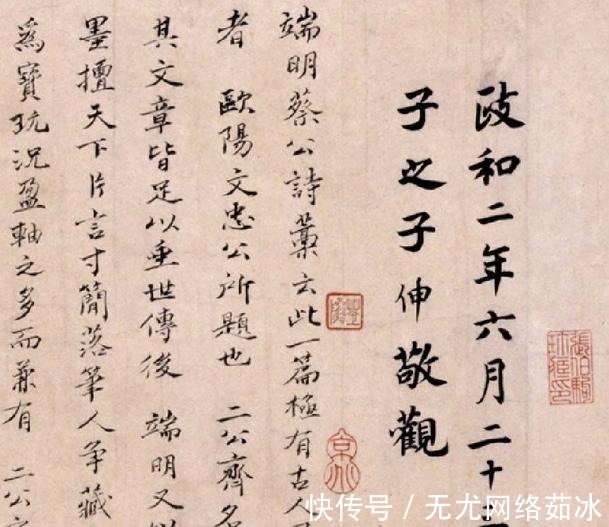 政和二年六月二十
子之子伸敬觀
端明蔡公詩藁云此一篇極有古人
者 歐陽文忠公所題也 二公齊名
其文章皆足以垂世傳後 端明又以
墨擅天下片言寸簡落筆人爭藏
爲寶玩況盈軸之多而兼有 二公
張伯駒珠還印
快传号 / 无尤网络茹冰